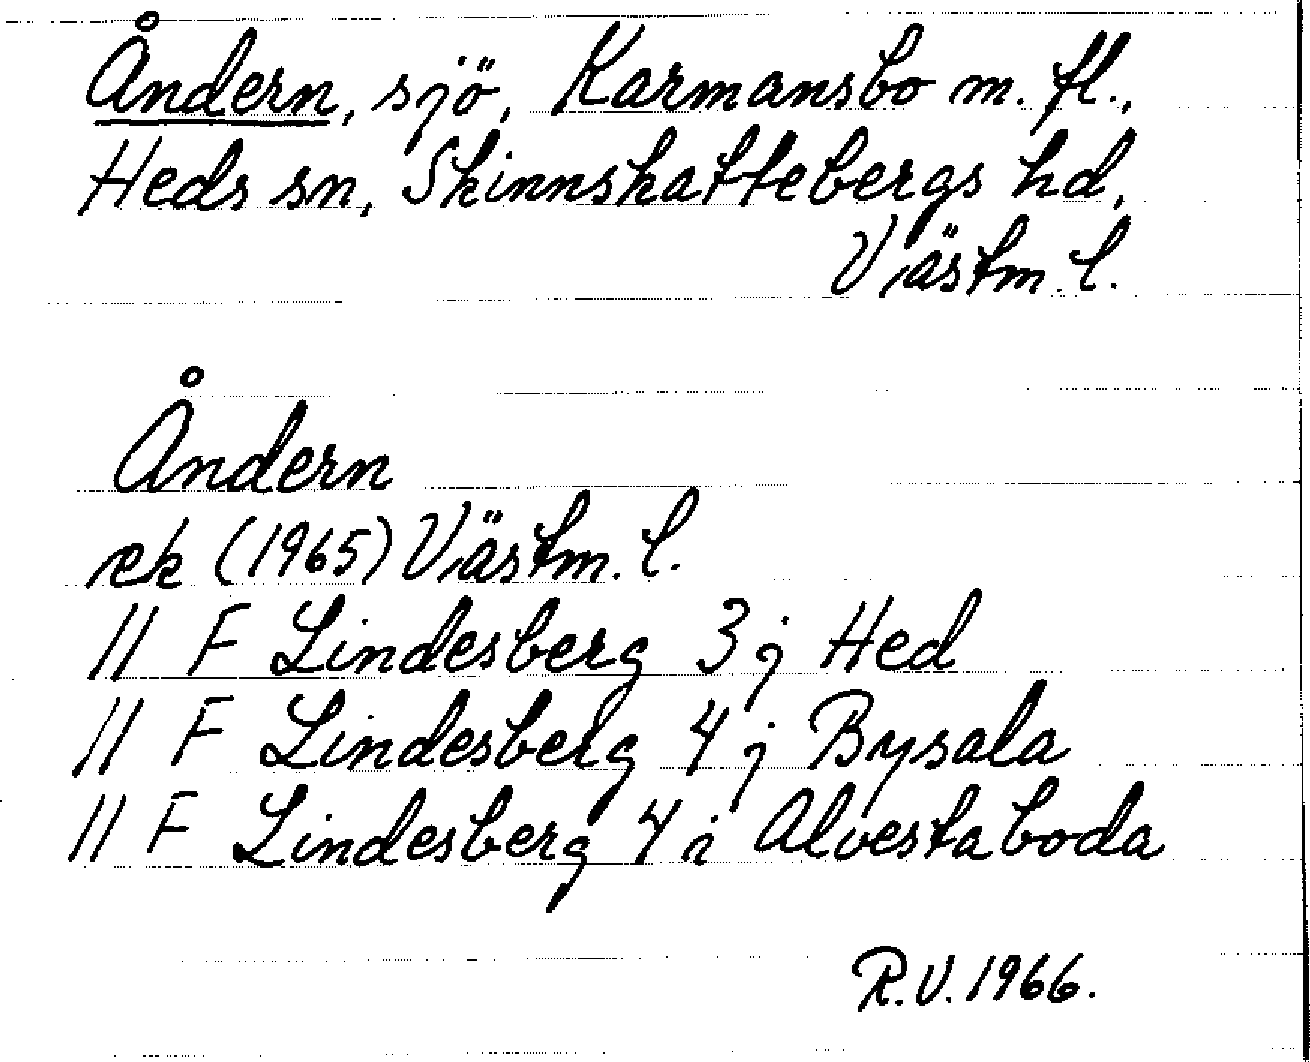 Åndern, sjö, Karmansbo m. fl.,
Heds sn, Skinnskattebergs hd,
Västm. l.
Åndern
rek (1965) Västm. l.
11 F Lindesberg 3 j Hed
11 F Lindesberg 4 j Bysala
11 F Lindesberg 4 i Alvestaboda
R.V. 1966.